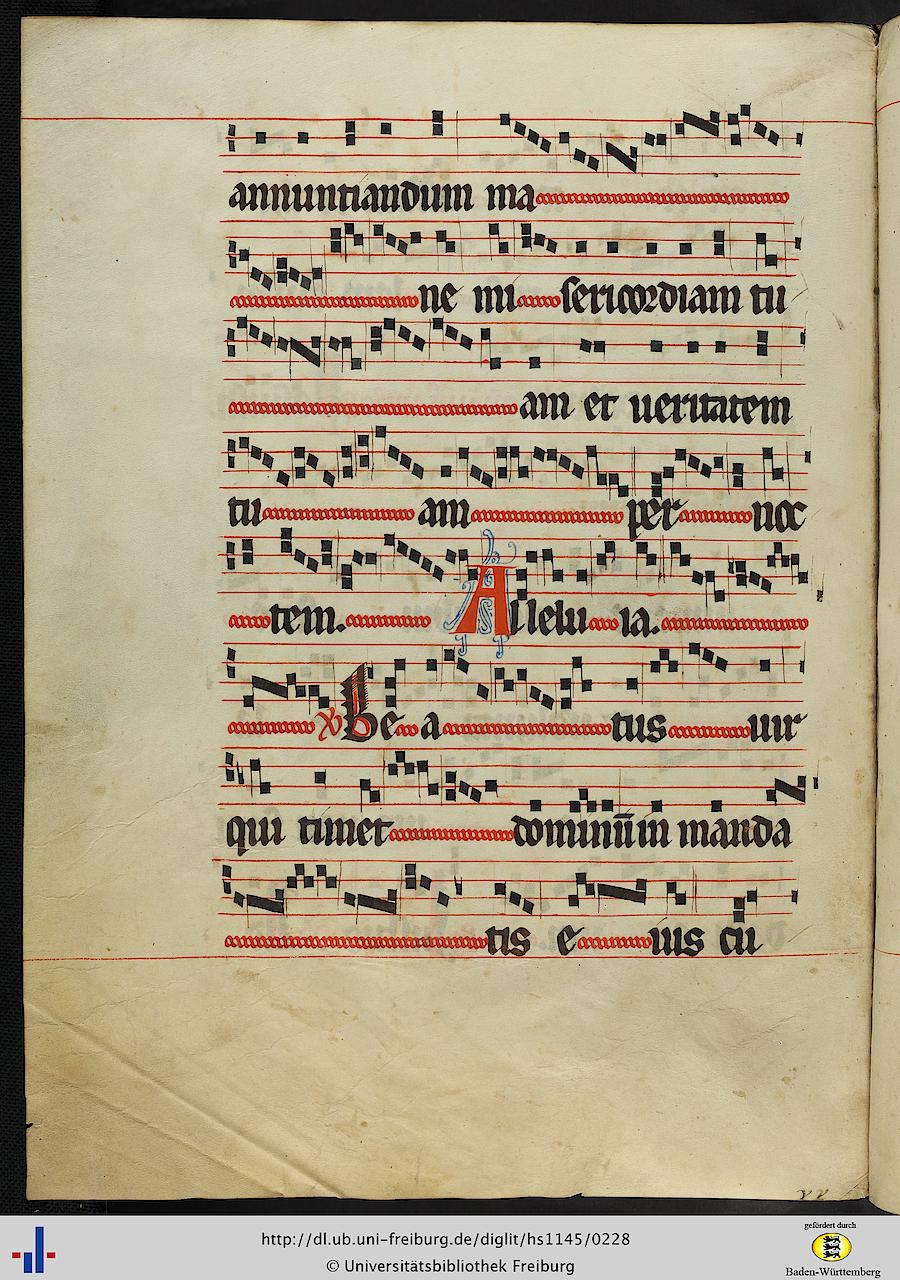 annuntiandum ma
ne mi sericordiam tu
am et ueritatem
tu am per noc
tem. Allelu ia.
Be a tus uir
qui timet dominū in manda
tis e ius cū
http://dl.ub.uni-freiburg.de/diglit/hs1145/0228
© Universitätsbibliothek Freiburg
gefördert durch
Baden-Württemberg